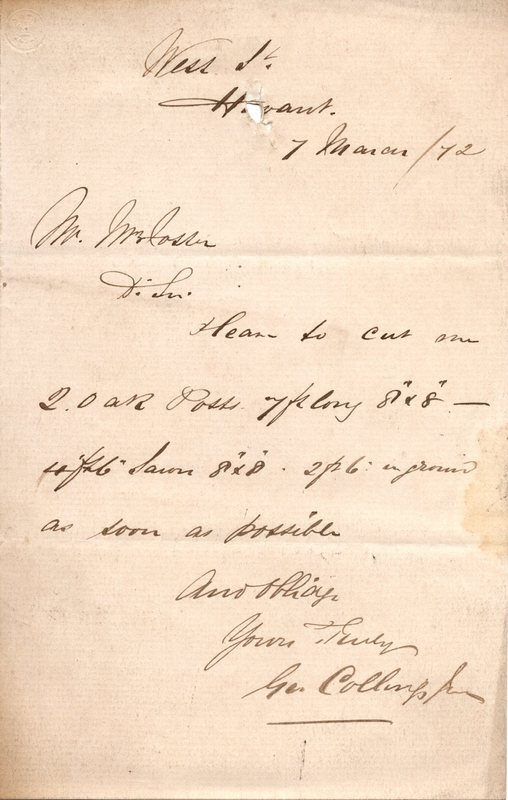 West St.
Havant.
7 March /72
Mr. McFoster
D. Sir.
Please to cut me
2. Oak Posts 7ft long 8" x 8" —
4ft 6" Sawn 8" x 8" . 2ft 6" in ground
as soon as possible
And Oblige
Yours Truly
Geo Collings Jun